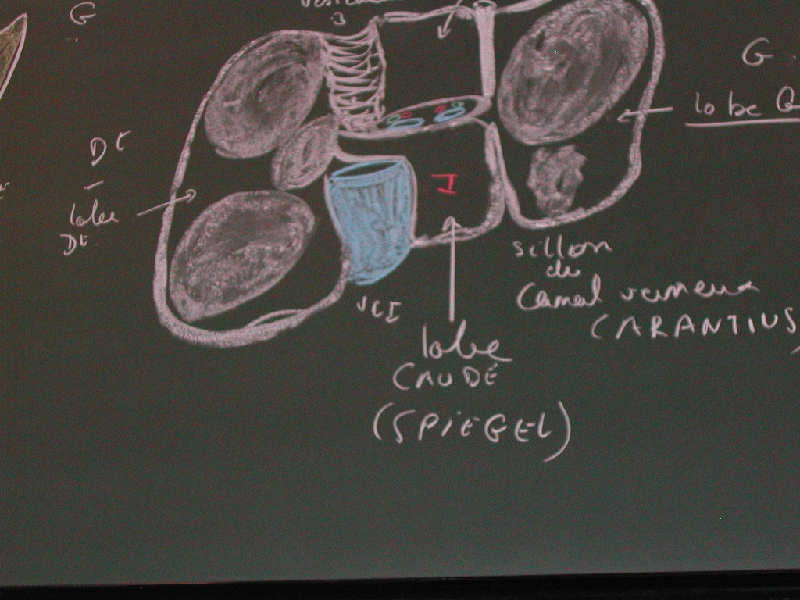 G
3
G
lobe G
Dt
lobe
Dt
I
sillon
du
Canal veineux
(ARANTIUS)
VCI
lobe
CAUDÉ
(SPIEGEL)